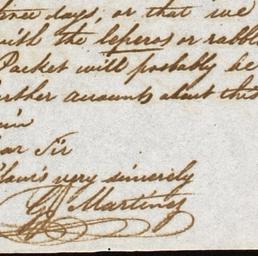 days, or that we
with the leperos or rabble
Packet will probably be
further accounts about this
Sir
Yours very sincerely
Martinez